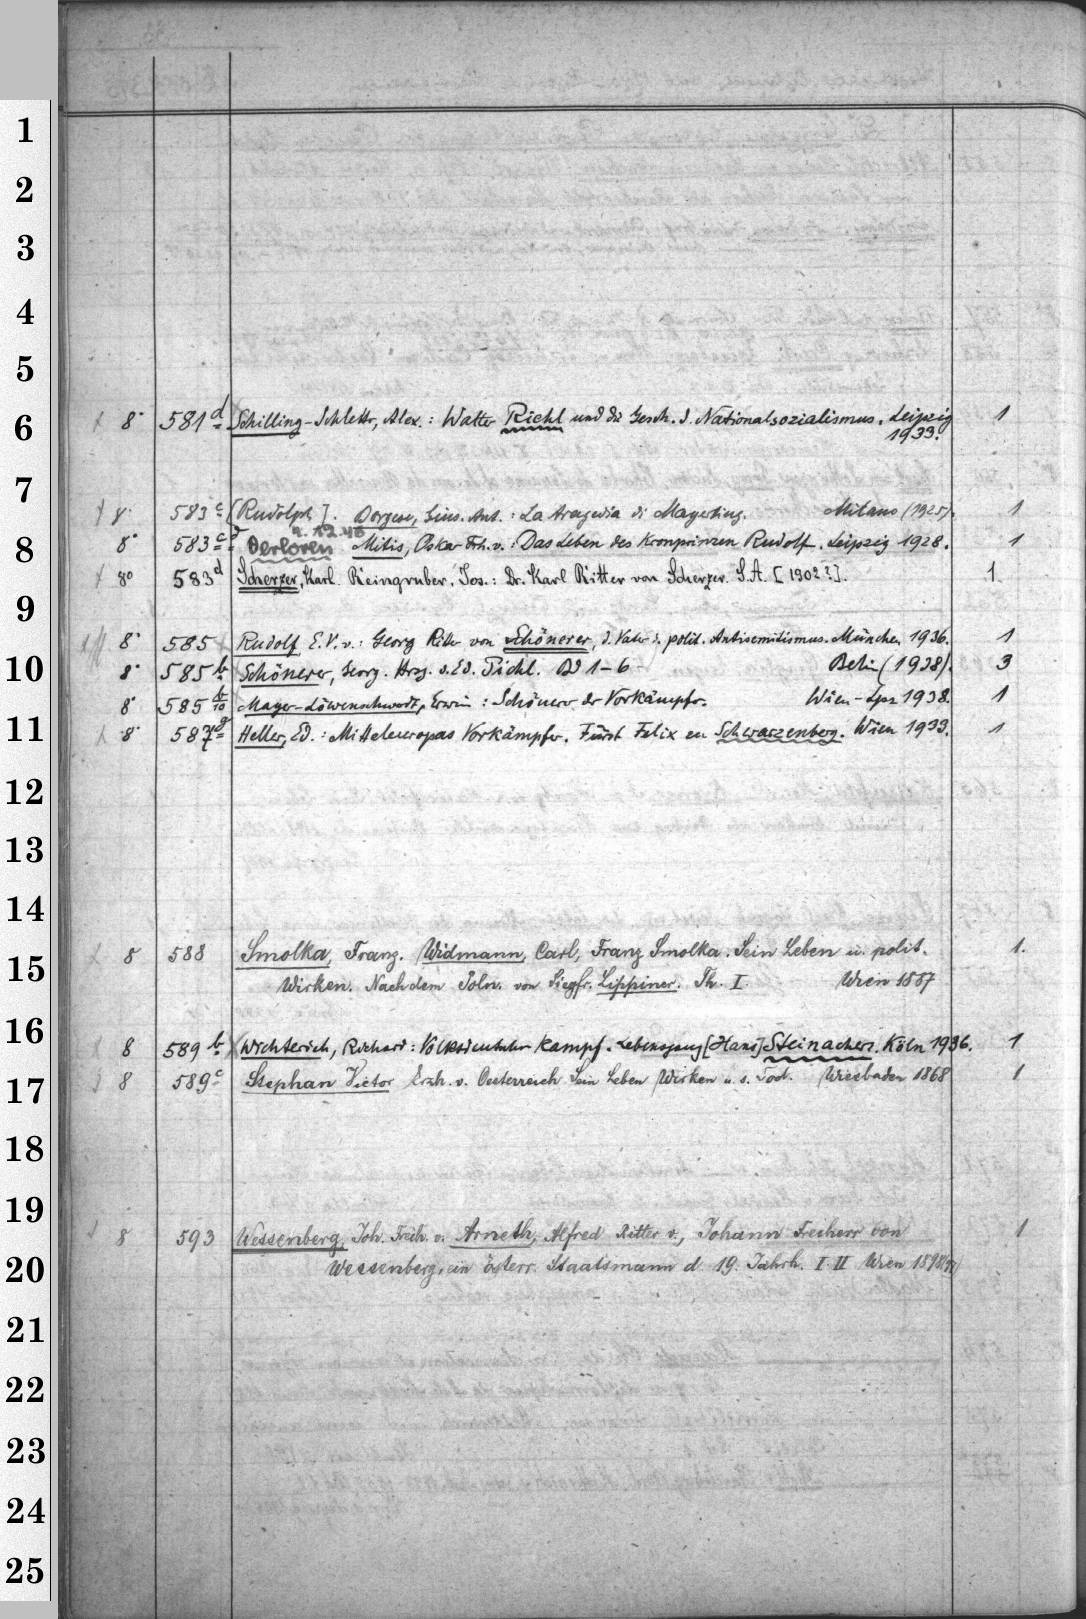 1
2
3
4
5
6
7
8
9
10
11
12
13
14
15
16
17
18
19
20
21
22
23
24
25
8° 581 d Schilling-Schletter, Alex.: Walter Riehl und die Gesch. d. Nationalsozialismus. Leipzig 1
1933.
8° 583 c [Rudolph]. Borgese, Gius. Ant.: La tragedia di Mayerling. Milano (1925). 1
12.40
8° 583 c Verloren Mitis, Oskar Frh. v.: Das Leben des Kronprinzen Rudolf. Leipzig 1928. 1
8° 583 d Scherzer, Karl. Reingruber, Jos.: Dr. Karl Ritter von Scherzer. S.A. [1902?]. 1
8° 585 Rudolf, E.V.v.: Georg Ritter von Schönerer, d. Vater d. polit. Antisemitismus. München 1936. 1
8° 585 b Schönerer, Georg. Hrsg. v. Ed. Pichl. Bd 1-6 Berlin (1938). 3
8° 585 b/10 Mayer-Löwenschwerdt, Erwin: Schönerer der Vorkämpfer. Wien-Lpz 1938. 1
8° 587 Heller, Ed.: Mitteleuropas Vorkämpfer. Fürst Felix zu Schwarzenberg. Wien 1933. 1
8 588 Smolka, Franz. Widmann, Carl, Franz Smolka. Sein Leben u. polit. 1.
Wirken. Nach dem Poln. von Siegfr. Lippiner. Th. I. Wien 1887
8 589 b Wichterich, Richard: Volksdeutscher Kampf. Lebensgang [Hans] Steinachers. Köln 1936. 1
8 589 c Stephan Victor Erzh. v. Oesterreich Sein Leben Wirken u. s. Tod. Wiesbaden 1868 1
8 593 Wessenberg, Joh. Freih. v. Arneth, Alfred Ritter v., Johann Freiherr von 1
Wessenberg, ein österr. Staatsmann d. 19. Jahrh. I. II Wien 1898